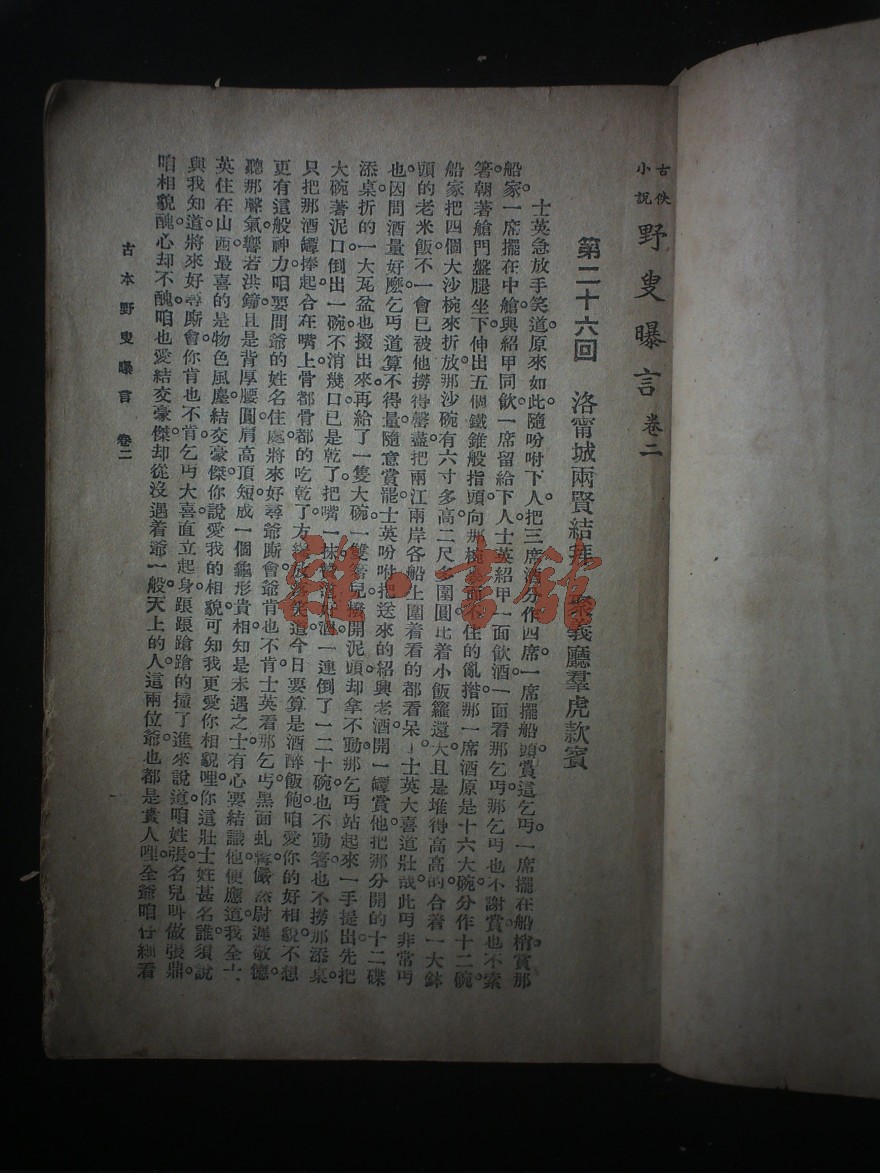 古佚小說 野叟曝言 卷二
第二十六回 洛甯城兩賢結拜 聚義廳羣虎款賓
士英急放手笑道原來如此隨吩咐下人把三席酒分作四席一席擺船頭賞這乞丐。一席擺在船梢賞那
船家。一席擺在中艙與紹甲同飲一席留給下人士英紹甲一面飲酒一面看那乞丐。那乞丐也不謝賞也不索
箸。朝著艙門盤腿坐下伸出五個鐵錐般指頭向那椀面不住的亂撈那一席酒原是十六大碗分作十二碗。
船家把四個大沙椀來折放。那沙碗有六寸多高二尺多圍圓比着小飯籮還大且是堆得高高的合着一大鉢
頭的老米飯不一會已被他撈得罄盡把兩江兩岸各船上圍着看的都看呆了士英大喜道壯哉此丐非常丐
也。因問酒量好麽乞丐道算不得量隨意賞罷。士英吩咐把送來的紹興老酒開一罈賞他把那分開的十二碟
添桌折的一大瓦盆也掇出來。再給了一隻大碗一雙箸兒撥開泥頭却拿不動那乞丐站起來一手提出先把
大碗著泥口倒出一碗不消幾口已是乾了。把嘴一抹 道好酒一連倒了一二十碗也不動箸也不撈那添桌
只把那酒罈捧起合在嘴上骨都骨都的吃乾了。方纔放落笑道今日要算是酒醉飯飽。咱愛你的好相貌不想
更有這般神力咱要問爺的姓名住處將來好尋爺廝會爺肯也不肯。士英看那乞丐黑面虬髯儼然尉遲敬德。
聽那聲氣響若洪鐘且是背厚腰圓肩高頂短成一個龜形貴相知是未遇之士有心要結識他便應道我全士
英住在山西最喜的是物色風塵結交豪傑你說愛我的相貌可知我更愛你相貌哩。你這壯士姓甚名誰須說
與我知道將來好尋廝會你肯也不肯乞丐大喜直立起身踉踉蹌蹌的撞了進來說道咱姓張名兒叫做張鼎
咱相貌醜。心却不醜。咱也愛結交豪傑却從沒遇着爺一般天上的人這兩位爺也都是貴人哩全爺咱仔細看
古本野叟曝言 卷二
雜·書館